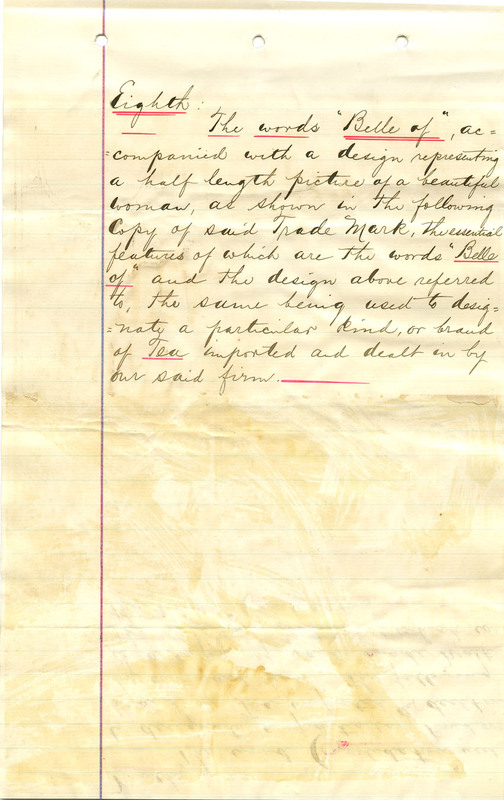 Eighth:
The words "Belle of", ac=
=companied with a design representing
a half length picture of a beautiful
woman, as shown in the following
Copy of said Trade Mark, the essential
features of which are the words "Belle
of" and the design above referred
to, the same being used to desig=
=nate a particular kind, or brand
of Tea imported and dealt in by
our said firm.